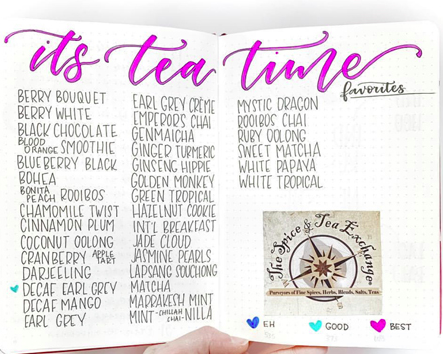 its tea time
favorites
BERRY BOUQUET
BERRY WHITE
BLACK CHOCOLATE
BLOOD ORANGE SMOOTHIE
BLUEBERRY BLACK
BOHEA
BONITA PEACH ROOIBOS
CHAMOMILE TWIST
CINNAMON PLUM
COCONUT OOLONG
CRANBERRY APPLE TART
DARJEELING
DECAF EARL GREY
DECAF MANGO
EARL GREY
EARL GREY CRÈME
EMPERORS CHAI
GENMAICHA
GINGER TURMERIC
GINSENG HIPPIE
GOLDEN MONKEY
GREEN TROPICAL
HAZELNUT COOKIE
INT'L BREAKFAST
JADE CLOUD
JASMINE PEARLS
LAPSANG SOUCHONG
MATCHA
MARRAKESH MINT
MINT-CHILLAH CHAI-NILLA
MYSTIC DRAGON
ROOIBOS CHAI
RUBY OOLONG
SWEET MATCHA
WHITE PAPAYA
WHITE TROPICAL
The Spice & Tea Exchange
Purveyors of Fine Spices, Herbs, Blends, Salts, Teas
EH
GOOD
BEST